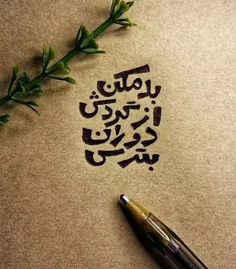 بد مکن
از گردش
دوران
بترس